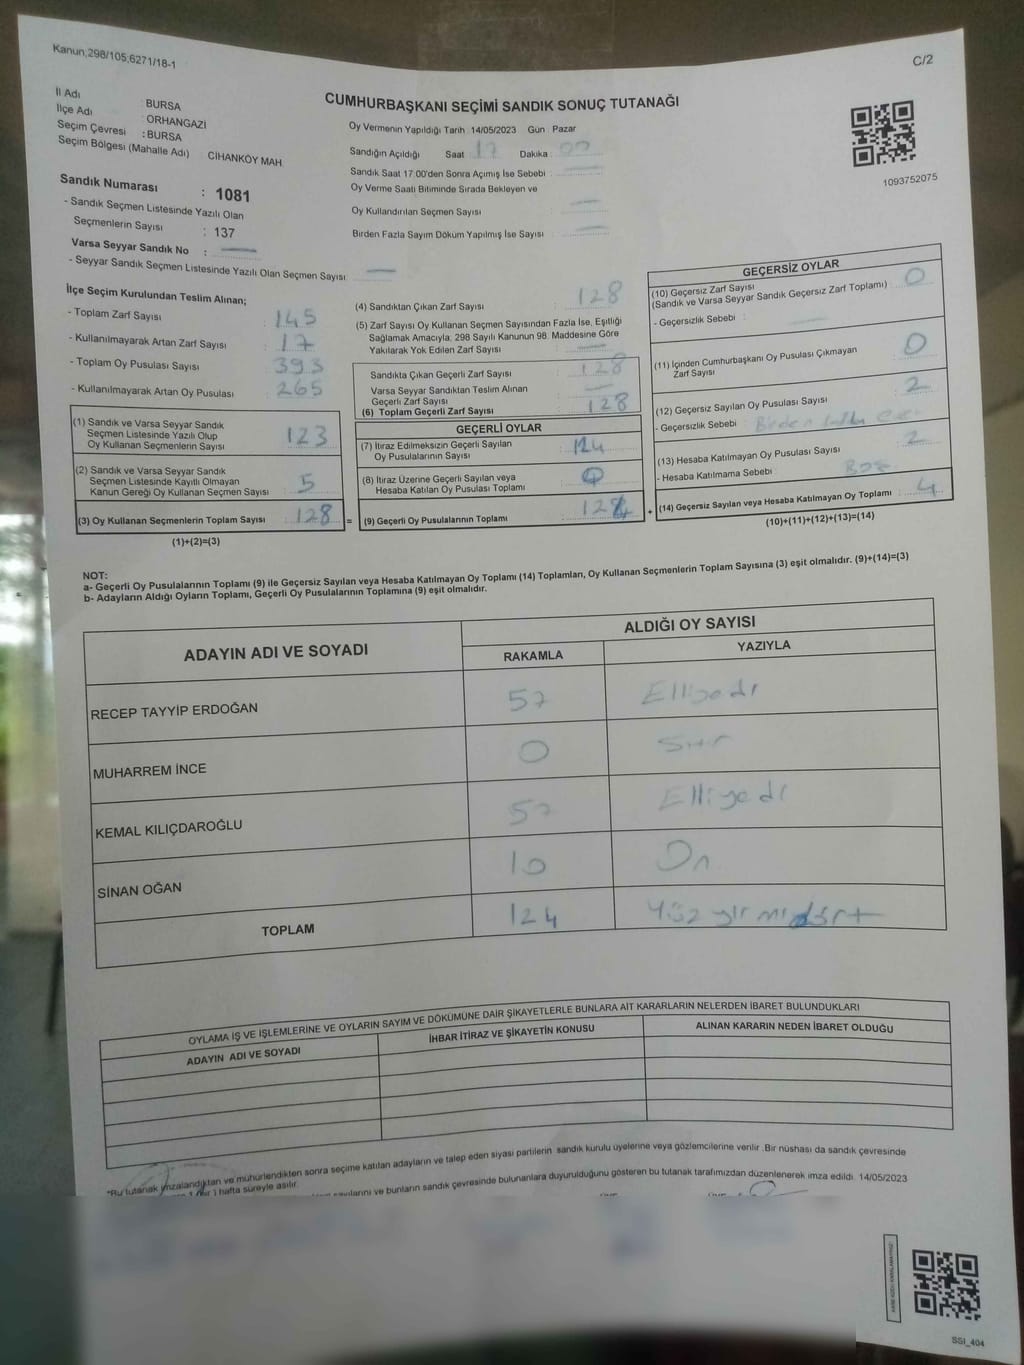 Kanun,298/105,6271/18-1
C/2
İl Adı : BURSA
İlçe Adı : ORHANGAZİ
Seçim Çevresi : BURSA
Seçim Bölgesi (Mahalle Adı) CİHANKÖY MAH
CUMHURBAŞKANI SEÇİMİ SANDIK SONUÇ TUTANAĞI
Oy Vermenin Yapıldığı Tarih 14/05/2023 Gün : Pazar
Sandığın Açıldığı Saat 17 Dakika : 00
Sandık Saat 17:00'den Sonra Açımış İse Sebebi :
Oy Verme Saati Bitiminde Sırada Bekleyen ve
Oy Kullandırılan Seçmen Sayısı :
Birden Fazla Sayım Döküm Yapılmış İse Sayısı :
1093752075
Sandık Numarası : 1081
- Sandık Seçmen Listesinde Yazılı Olan
Seçmenlerin Sayısı : 137
Varsa Seyyar Sandık No :
- Seyyar Sandık Seçmen Listesinde Yazılı Olan Seçmen Sayısı:
İlçe Seçim Kurulundan Teslim Alınan;
- Toplam Zarf Sayısı : 145
- Kullanılmayarak Artan Zarf Sayısı : 17
- Toplam Oy Pusulası Sayısı : 393
- Kullanılmayarak Artan Oy Pusulası : 265
(1) Sandık ve Varsa Seyyar Sandık
Seçmen Listesinde Yazılı Olup
Oy Kullanan Seçmenlerin Sayısı : 123
(2) Sandık ve Varsa Seyyar Sandık
Seçmen Listesinde Kayıtlı Olmayan
Kanun Gereği Oy Kullanan Seçmen Sayısı : 5
(3) Oy Kullanan Seçmenlerin Toplam Sayısı : 128
(1)+(2)=(3)
(4) Sandıktan Çıkan Zarf Sayısı : 128
(5) Zarf Sayısı Oy Kullanan Seçmen Sayısından Fazla İse, Eşitliği
Sağlamak Amacıyla, 298 Sayılı Kanunun 98. Maddesine Göre
Yakılarak Yok Edilen Zarf Sayısı :
Sandıkta Çıkan Geçerli Zarf Sayısı : 128
Varsa Seyyar Sandıktan Teslim Alınan
Geçerli Zarf Sayısı :
(6) Toplam Geçerli Zarf Sayısı : 128
GEÇERLİ OYLAR
(7) İtiraz Edilmeksizin Geçerli Sayılan
Oy Pusulalarının Sayısı : 124
(8) İtiraz Üzerine Geçerli Sayılan veya
Hesaba Katılan Oy Pusulası Toplamı : 0
= (9) Geçerli Oy Pusulalarının Toplamı : 124
GEÇERSİZ OYLAR
(10) Geçersiz Zarf Sayısı
(Sandık ve Varsa Seyyar Sandık Geçersiz Zarf Toplamı) : 0
- Geçersizlik Sebebi :
(11) İçinden Cumhurbaşkanı Oy Pusulası Çıkmayan
Zarf Sayısı : 0
(12) Geçersiz Sayılan Oy Pusulası Sayısı : 2
- Geçersizlik Sebebi : Birden
(13) Hesaba Katılmayan Oy Pusulası Sayısı : 2
- Hesaba Katılmama Sebebi : Boş
+ (14) Geçersiz Sayılan veya Hesaba Katılmayan Oy Toplamı : 4
(10)+(11)+(12)+(13)=(14)
NOT:
a- Geçerli Oy Pusulalarının Toplamı (9) ile Geçersiz Sayılan veya Hesaba Katılmayan Oy Toplamı (14) Toplamları, Oy Kullanan Seçmenlerin Toplam Sayısına (3) eşit olmalıdır. (9)+(14)=(3)
b- Adayların Aldığı Oyların Toplamı, Geçerli Oy Pusulalarının Toplamına (9) eşit olmalıdır.
ADAYIN ADI VE SOYADI
ALDIĞI OY SAYISI
RAKAMLA YAZIYLA
RECEP TAYYİP ERDOĞAN 57 Elliyedi
MUHARREM İNCE 0 Sıfır
KEMAL KILIÇDAROĞLU 57 Elliyedi
SİNAN OĞAN 10 On
TOPLAM 124 Yüzyirmidört
OYLAMA İŞ VE İŞLEMLERİNE VE OYLARIN SAYIM VE DÖKÜMÜNE DAİR ŞİKAYETLERLE BUNLARA AİT KARARLARIN NELERDEN İBARET BULUNDUKLARI
ADAYIN ADI VE SOYADI İHBAR İTİRAZ VE ŞİKAYETİN KONUSU ALINAN KARARIN NEDEN İBARET OLDUĞU
*Bu tutanak imzalandıktan ve mühürlendikten sonra seçime katılan adayların ve talep eden siyasi partilerin sandık kurulu üyelerine veya gözlemcilerine verilir. Bir nüshası da sandık çevresinde
1 (bir) hafta süreyle asılır.
sayılarını ve bunların sandık çevresinde bulunanlara duyurulduğunu gösteren bu tutanak tarafımızdan düzenlenerek imza edildi. 14/05/2023
SSI_404